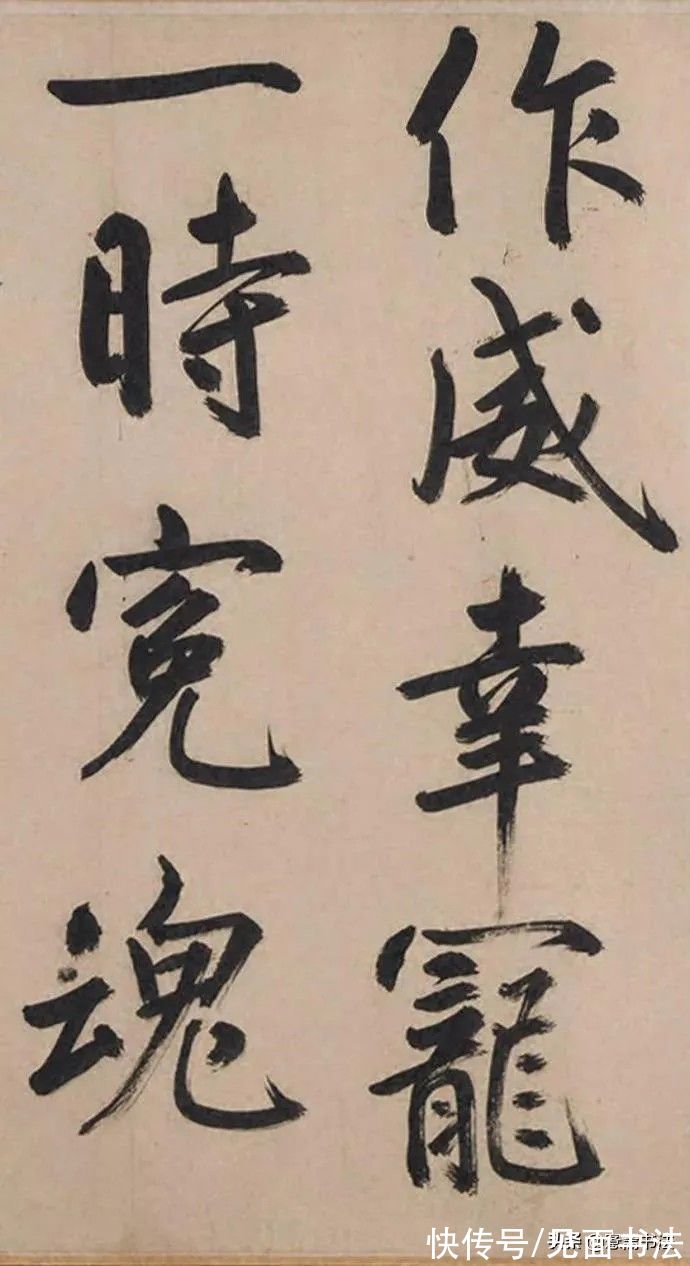 作威幸寵
一時寃魂
快传号/见面书法